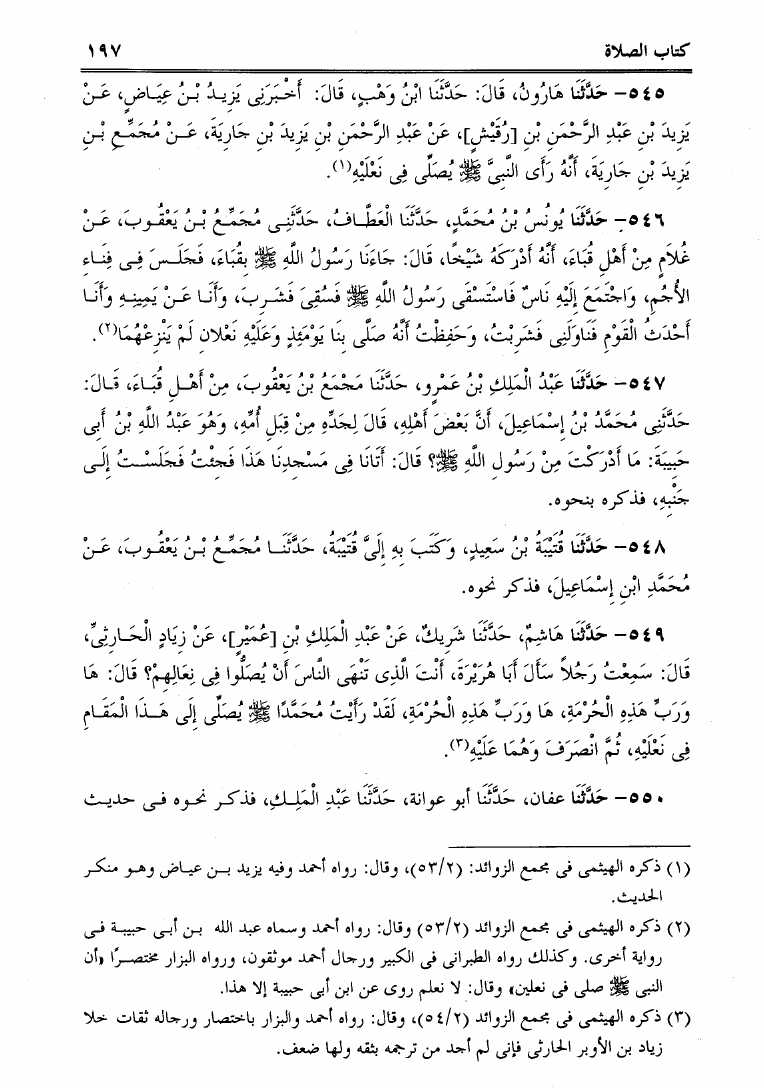 كتاب الصلاة ١٩٧
٥٤٥- حَدَّثَنَا هَارُونُ، قَالَ: حَدَّثَنَا ابْنُ وَهْبٍ، قَالَ: أَخْبَرَنِى يَزِيدُ بْنُ عِيَاضٍ، عَنْ
يَزِيدَ بْنِ عَبْدِ الرَّحْمَنِ بْنِ [رُقَيْشٍ]، عَنْ عَبْدِ الرَّحْمَنِ بْنِ يَزِيدَ بْنِ جَارِيَةَ، عَنْ مُجَمِّعِ بْنِ
يَزِيدَ بْنِ جَارِيَةَ، أَنَّهُ رَأَى النَّبِىَّ ﷺ يُصَلِّى فِى نَعْلَيْهِ(١).
٥٤٦- حَدَّثَنَا يُونُسُ بْنُ مُحَمَّدٍ، حَدَّثَنَا الْعَطَّافُ، حَدَّثَنِى مُجَمِّعُ بْنُ يَعْقُوبَ، عَنْ
غُلَامٍ مِنْ أَهْلِ قُبَاءَ، أَنَّهُ أَدْرَكَهُ شَيْخًا، قَالَ: جَاءَنَا رَسُولُ اللَّهِ ﷺ بِقُبَاءَ، فَجَلَسَ فِى فِنَاءِ
الأُجُمِ، وَاجْتَمَعَ إِلَيْهِ نَاسٌ فَاسْتَسْقَى رَسُولُ اللَّهِ ﷺ فَسُقِىَ فَشَرِبَ، وَأَنَا عَنْ يَمِينِهِ وَأَنَا
أَحْدَثُ الْقَوْمِ فَنَاوَلَنِى فَشَرِبْتُ، وَحَفِظْتُ أَنَّهُ صَلَّى بِنَا يَوْمَئِذٍ وَعَلَيْهِ نَعْلانِ لَمْ يَنْزِعْهُمَا(٢).
٥٤٧- حَدَّثَنَا عَبْدُ الْمَلِكِ بْنُ عَمْرٍو، حَدَّثَنَا مَجْمَعُ بْنُ يَعْقُوبَ، مِنْ أَهْلِ قُبَاءَ، قَالَ:
حَدَّثَنِى مُحَمَّدُ بْنُ إِسْمَاعِيلَ، أَنَّ بَعْضَ أَهْلِهِ، قَالَ لِجَدِّهِ مِنْ قِبَلِ أُمِّهِ، وَهُوَ عَبْدُ اللَّهِ بْنُ أَبِى
حَبِيبَةَ: مَا أَدْرَكْتَ مِنْ رَسُولِ اللَّهِ ﷺ؟ قَالَ: أَتَانَا فِى مَسْجِدِنَا هَذَا فَجِئْتُ فَجَلَسْتُ إِلَى
جَنْبِهِ، فذكره بنحوه.
٥٤٨- حَدَّثَنَا قُتَيْبَةُ بْنُ سَعِيدٍ، وَكَتَبَ بِهِ إِلَىَّ قُتَيْبَةُ، حَدَّثَنَا مُجَمِّعُ بْنُ يَعْقُوبَ، عَنْ
مُحَمَّدِ ابْنِ إِسْمَاعِيلَ، فذكر نحوه.
٥٤٩- حَدَّثَنَا هَاشِمٌ، حَدَّثَنَا شَرِيكٌ، عَنْ عَبْدِ الْمَلِكِ بْنِ [عُمَيْرٍ]، عَنْ زِيَادٍ الْحَارِثِىِّ،
قَالَ: سَمِعْتُ رَجُلاً سَأَلَ أَبَا هُرَيْرَةَ، أَنْتَ الَّذِى تَنْهَى النَّاسَ أَنْ يُصَلُّوا فِى نِعَالِهِمْ؟ قَالَ: هَا
وَرَبِّ هَذِهِ الْحُرْمَةِ، هَا وَرَبِّ هَذِهِ الْحُرْمَةِ، لَقَدْ رَأَيْتُ مُحَمَّدًا ﷺ يُصَلِّى إِلَى هَذَا الْمَقَامِ
فِى نَعْلَيْهِ، ثُمَّ انْصَرَفَ وَهُمَا عَلَيْهِ(٣).
٥٥٠- حَدَّثَنَا عفان، حَدَّثَنَا أبو عوانة، حَدَّثَنَا عَبْدِ الْمَلِكِ، فذكر نحوه فى حديث
(١) ذكره الهيثمى فى مجمع الزوائد: (٥٣/٢)، وقال: رواه أحمد وفيه يزيد بن عياض وهو منكر
الحديث.
(٢) ذكره الهيثمى فى مجمع الزوائد (٥٣/٢) وقال: رواه أحمد وسماه عبد الله بن أبى حبيبة فى
رواية أخرى. وكذلك رواه الطبرانى فى الكبير ورجال أحمد موثقون، ورواه البزار مختصرًا «أن
النبى ﷺ صلى فى نعلين» وقال: لا نعلم روى عن ابن أبى حبيبة إلا هذا.
(٣) ذكره الهيثمى فى مجمع الزوائد (٥٤/٢)، وقال: رواه أحمد والبزار باختصار ورجاله ثقات خلا
زياد بن الأوبر الحارثى فإنى لم أجد من ترجمه بثقه ولها ضعف.